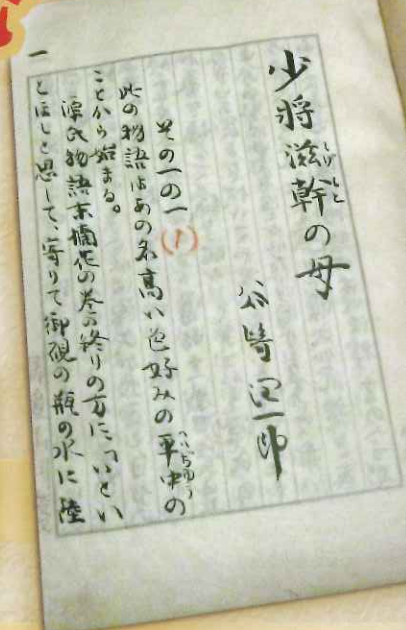 少將滋幹の母
しげもと
谷崎潤一郎
その一の一
(1)
此の物語はあの名高い色好みの平中の
へいぢゆう
ことから始まる。
源氏物語末摘花の巻の終りの方に、「いとい
とほしと思して、寄りて御硯の瓶の水に陸
一